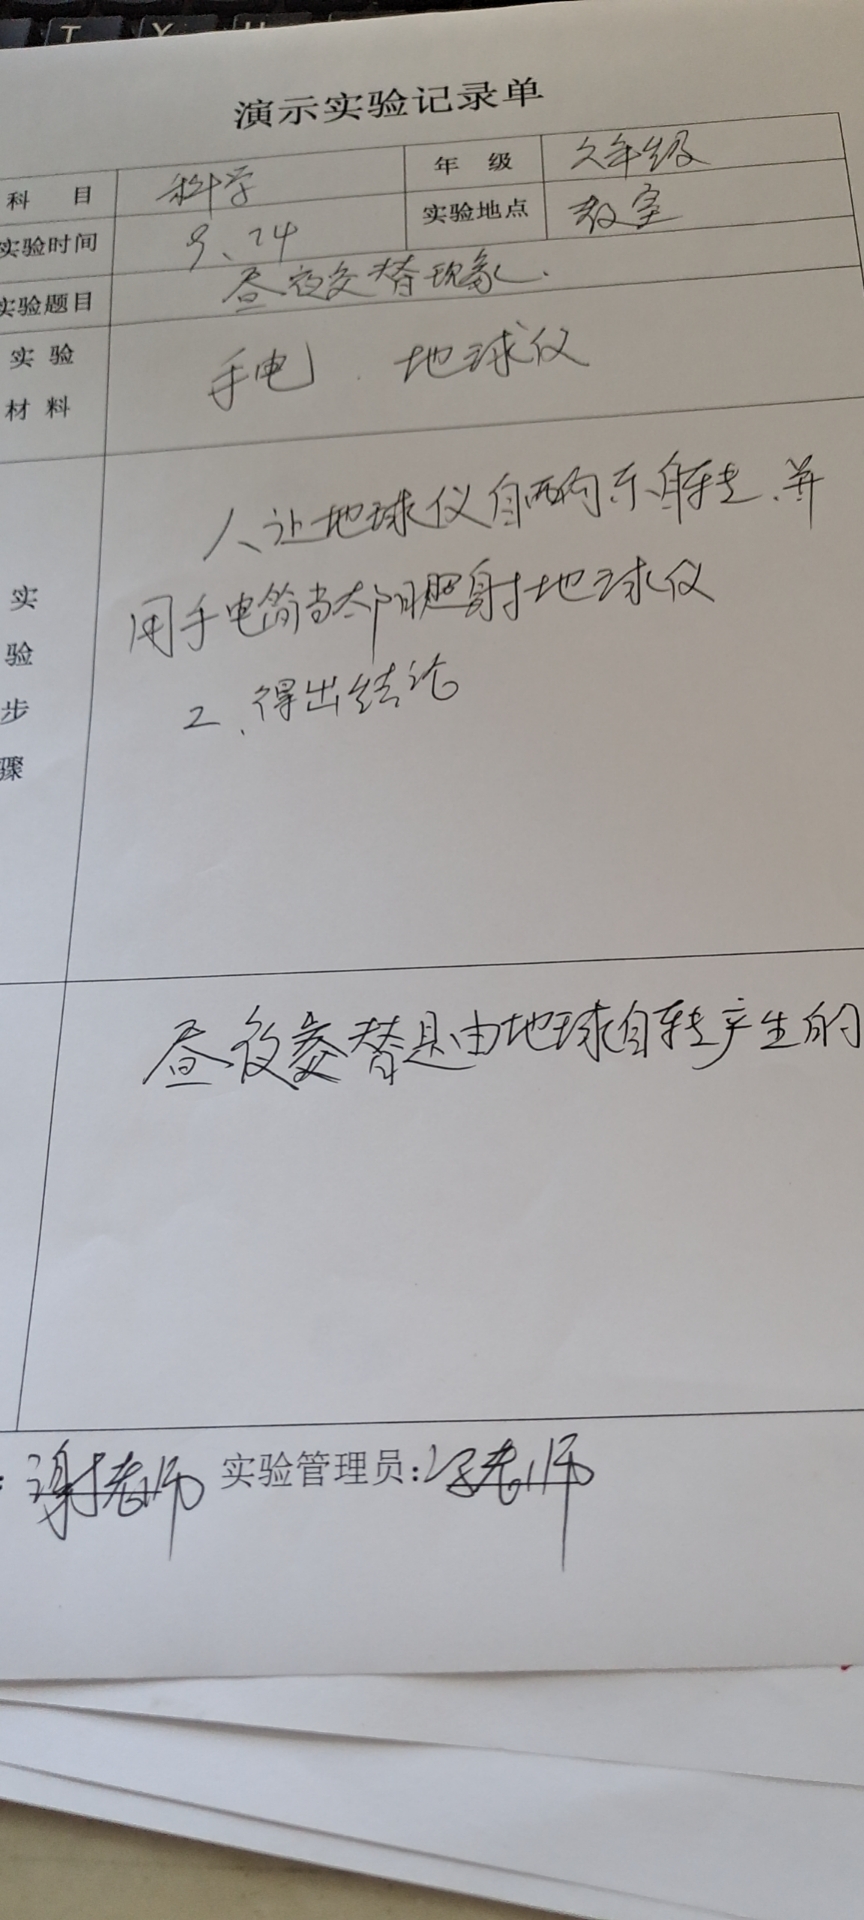 T Y U
演示实验记录单
科 目 科学 年 级 六年级
实验时间 9、24 实验地点 教室
实验题目 昼夜交替现象.
实 验
材 料
手电 . 地球仪
实
验
步
骤
1、让地球仪自西向东自转、并
用手电筒当太阳照射地球仪
2、得出结论
昼夜交替是由地球自转产生的
: 谢老师 实验管理员: 老师